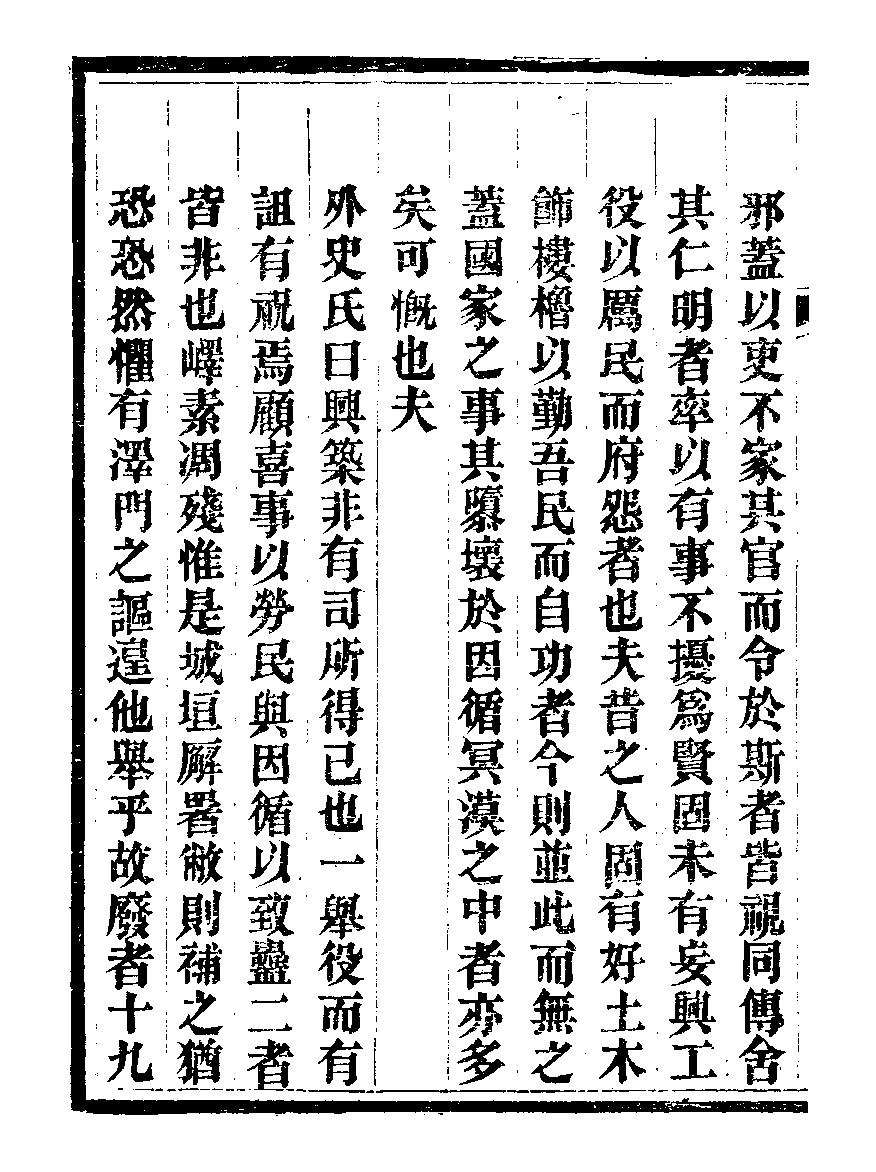 邪蓋以吏不家其官而令於斯者皆視同傳舍
其仁明者率以有事不擾爲賢固未有妄興工
役以厲民而府怨者也夫昔之人固有好土木
飾樓櫓以勤吾民而自功者今則並此而無之
蓋國家之事其隳壞於因循冥漠之中者亦多
矣可慨也夫
外史氏曰興築非有司所得已也一舉役而有
詛有祝焉顧喜事以勞民與因循以致蠱二者
皆非也嶧素凋殘惟是城垣廨署敝則補之猶
恐恐然懼有澤門之謳遑他舉乎故廢者十九